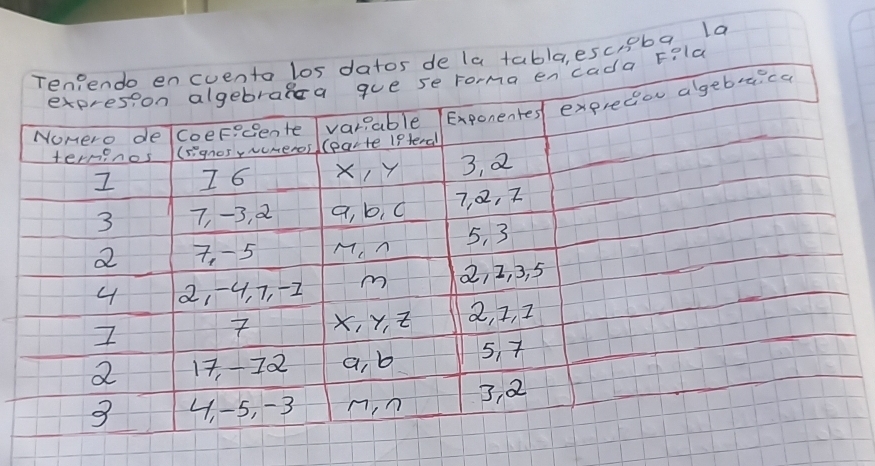 Teniendo en cuenta los datos de la tabla, escriba la
expresion algebraica que se forma en cada Fila
Numero de terminos | coeficiente (signos y numeros) | variable (parte literal | Exponentes | exprecion algebraica
1 | 16 | x, y | 3, 2
3 | 7, -3, 2 | a, b, c | 7, 2, 1
2 | 7, -5 | m, n | 5, 3
4 | 2, -4, 7, -1 | m | 2, 1, 3, 5
1 | 7 | x, y, z | 2, 7, 1
2 | 17, -12 | a, b | 5, 7
3 | 4, -5, -3 | m, n | 3, 2